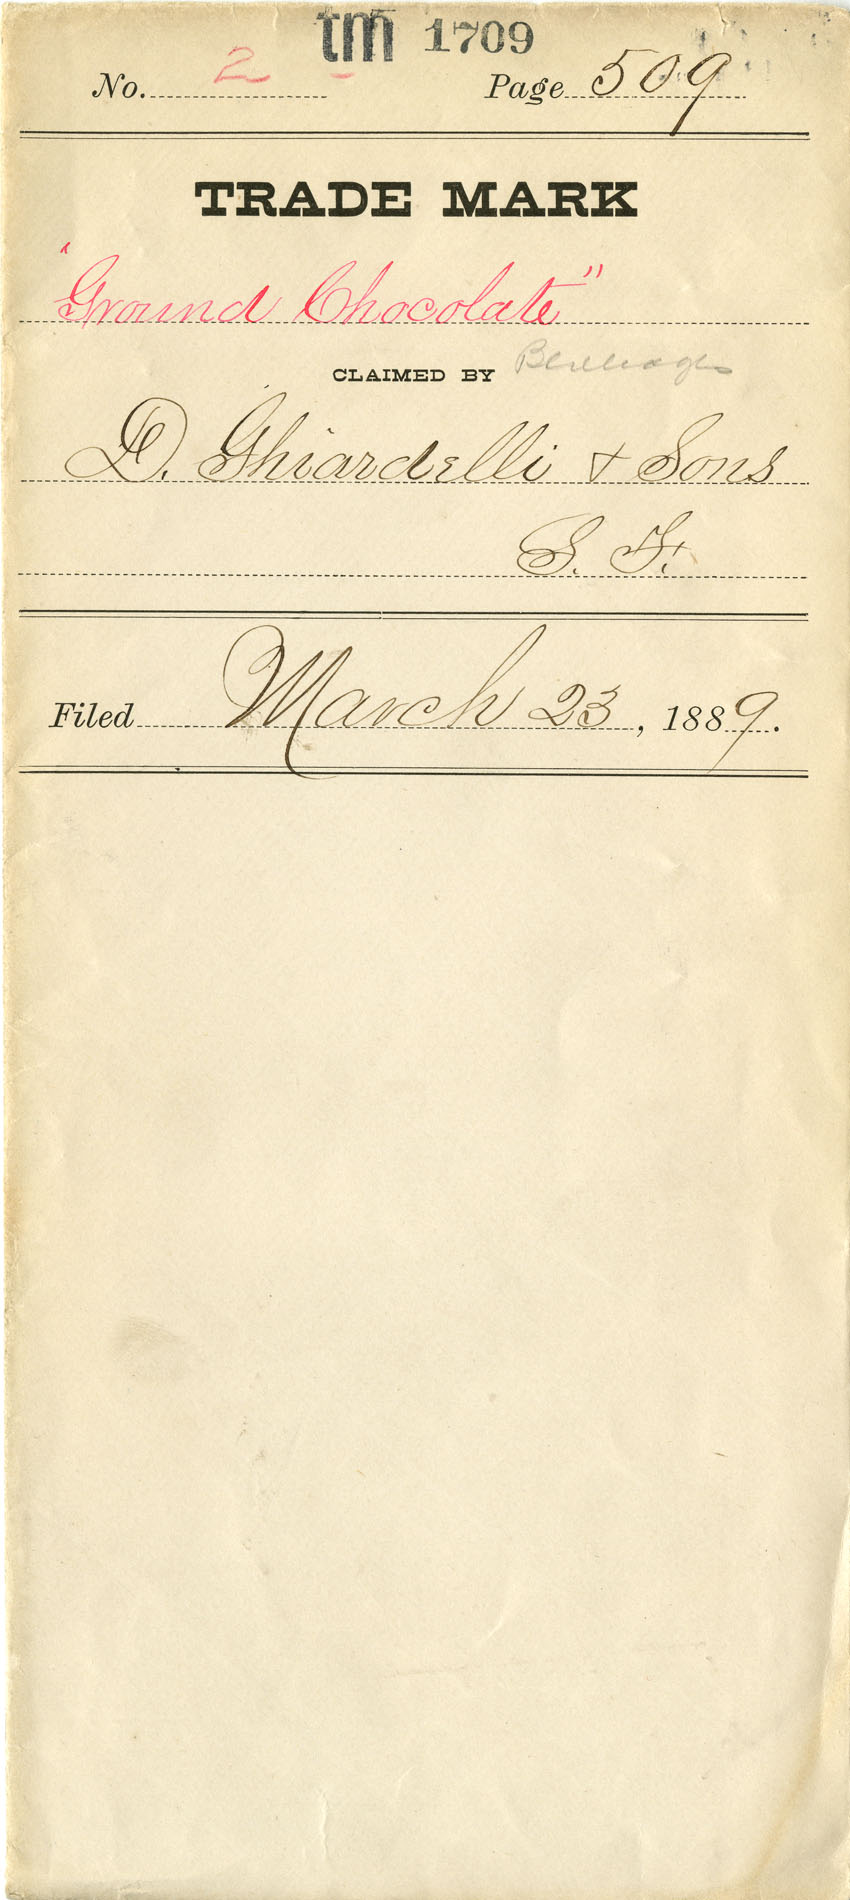 tm 1709
No. 2 Page 509
TRADE MARK
"Ground Chocolate"
CLAIMED BY Beverages
D. Ghiardelli & Sons
S. F.
Filed March 23, 1889.